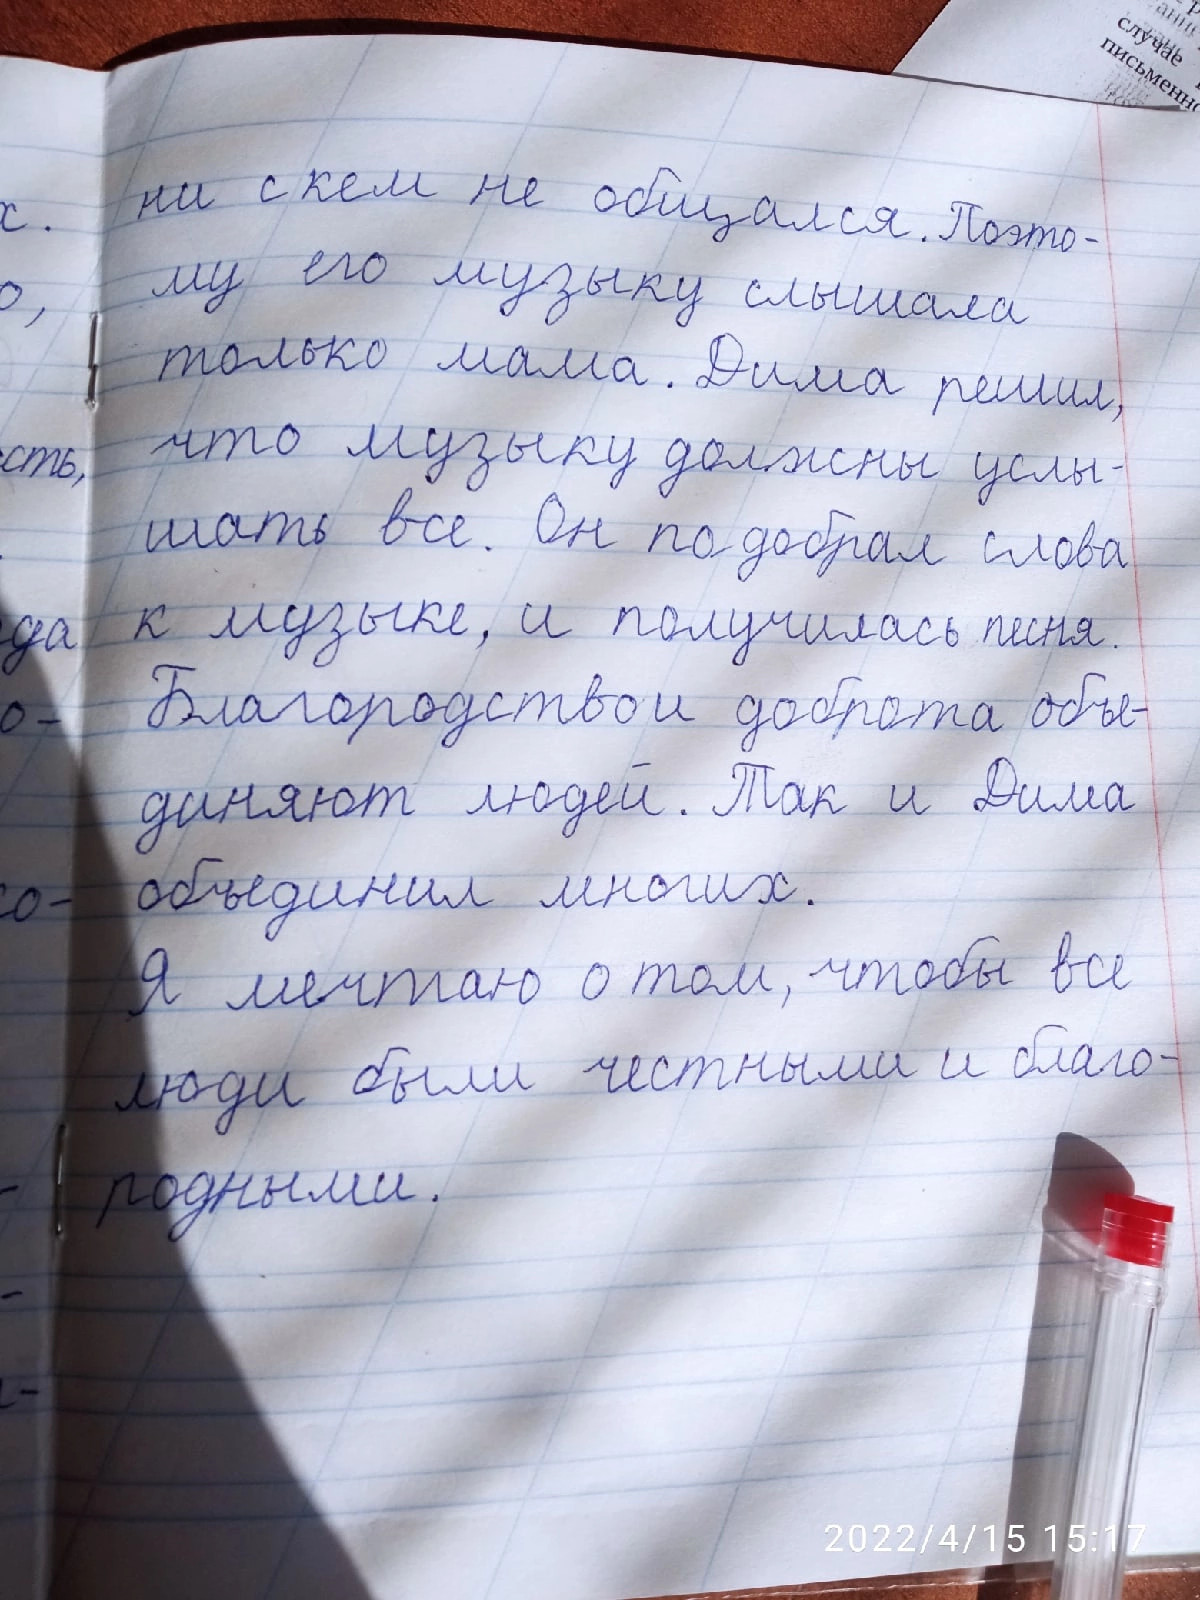 случае
письменно
х.
о,
сть,
да
о-
со-
ни с кем не общался. Поэто-
му его музыку слышала
только мама. Дима решил,
что музыку должны услы-
шать все. Он подобрал слова
к музыке, и получилась песня.
Благородство и доброта объе-
диняют людей. Так и Дима
объединил многих.
Я мечтаю о том, чтобы все
люди были честными и благо-
родными.
2022/4/15 15:17